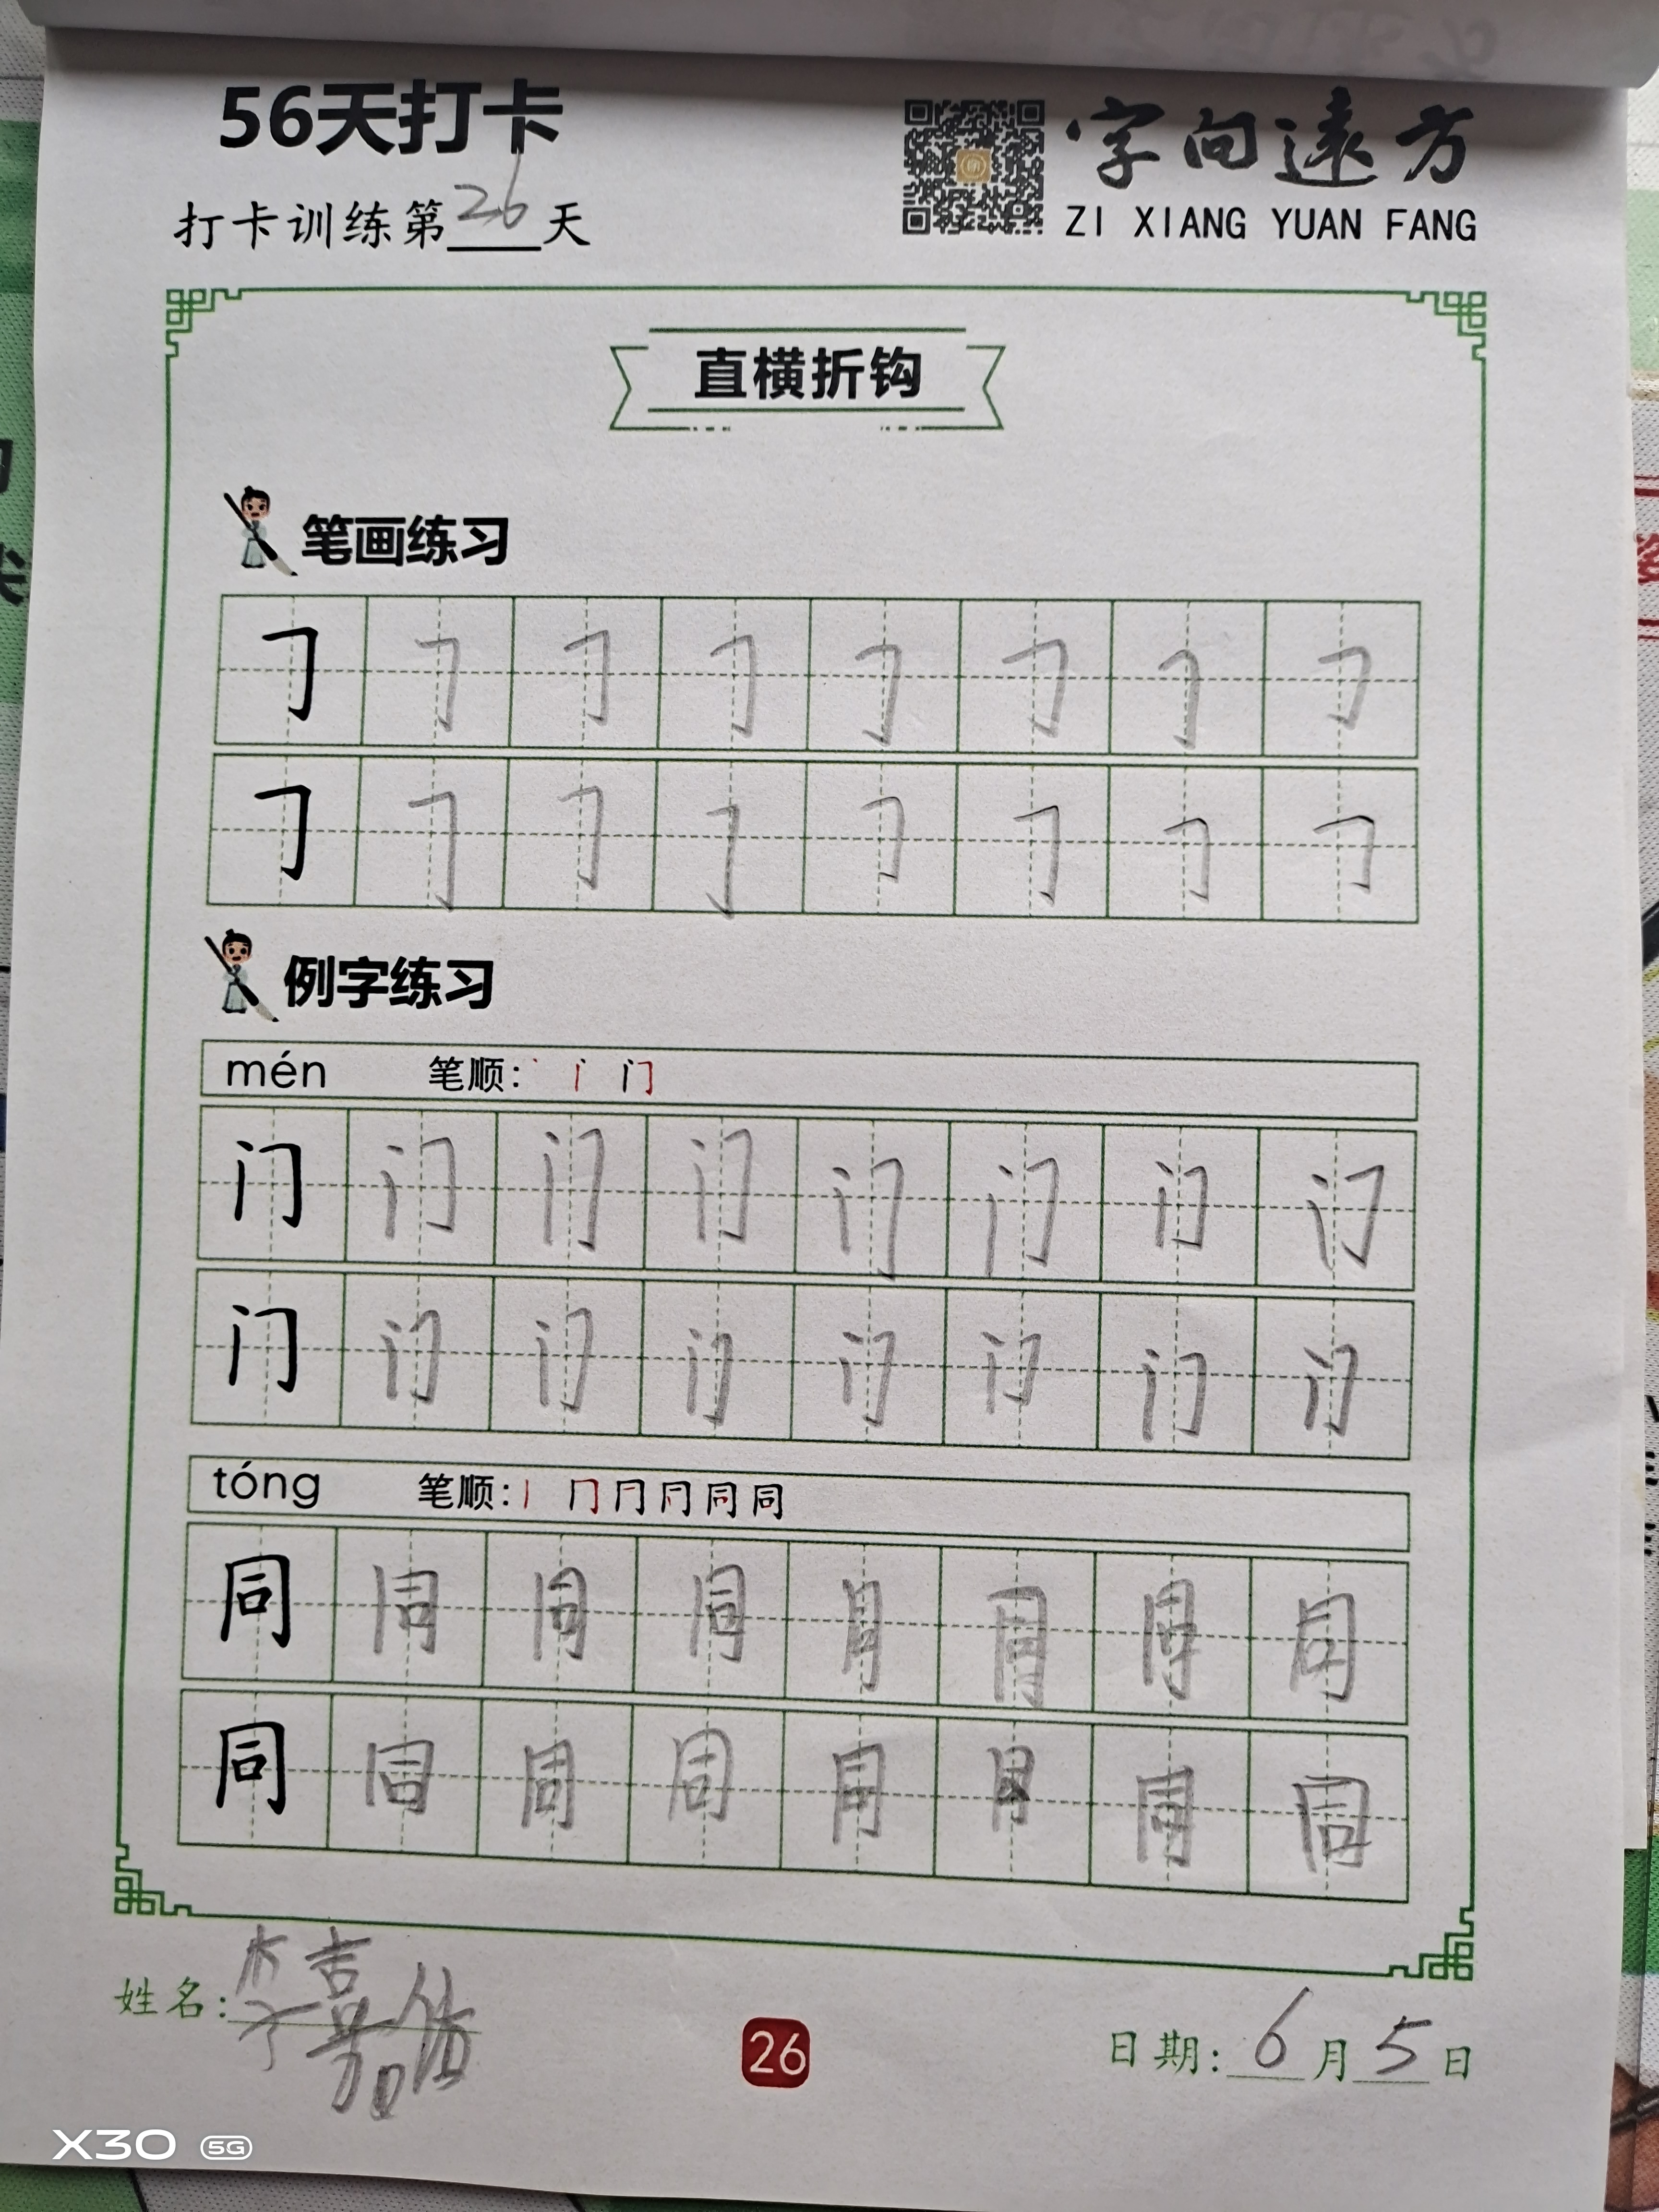 56天打卡
字向遠方
打卡训练第26天
ZI XIANG YUAN FANG
直横折钩
笔画练习
𠃌 𠃌 𠃌 𠃌 𠃌 𠃌 𠃌 𠃌
𠃌 𠃌 𠃌 𠃌 𠃌 𠃌 𠃌 𠃌
例字练习
mén 笔顺: 丶 门
门 门 门 门 门 门 门 门
门 门 门 门 门 门 门 门
tóng 笔顺: 丨 冂 同 同
同 同 同 同 同 同 同 同
同 同 同 同 同 同 同 同
姓名: 李嘉
26
日期: 6月5日
X30 5G